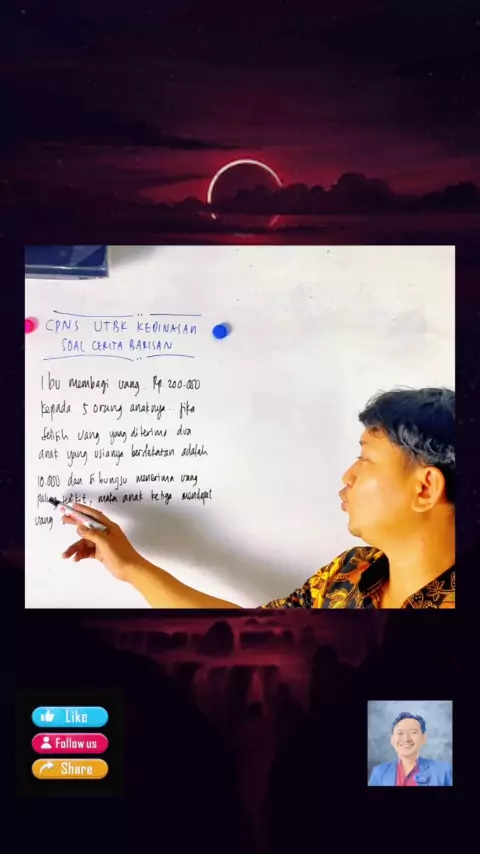 CPNS UTBK KEDINASAN
SOAL CERITA BARISAN
Ibu membagi uang Rp. 200.000
kepada 5 orang anaknya. Jika
selisih uang yang diterima dua
anak yang usianya berdekatan adalah
10.000 dan si bungsu menerima uang
paling sedikit, maka anak ketiga mendapat
uang
Like
Follow us
Share